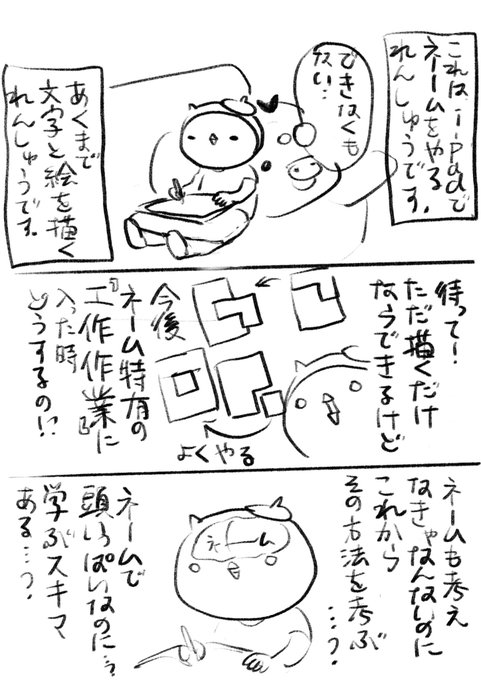 これは、i-padで
ネームをやる
れんしゅうです。
できなくも
ない…
あくまで
文字と絵を描く
れんしゅうです。
待って！
ただ描くだけ
ならできるけど
よくやる
今後
ネーム特有の
『工作作業』に
入った時
どうするの!!?
ネームも考え
なきゃなんないのに
これから
その方法を考ぶ
…？
ネーム
ネームで
頭いっぱいなのに…？
学ぶスキマ
ある…？